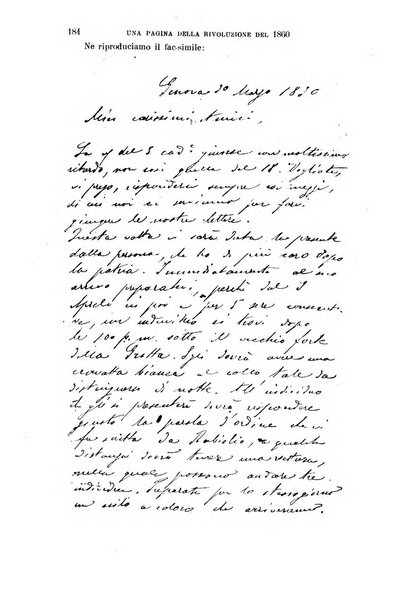 184 UNA PAGINA DELLA RIVOLUZIONE DEL 1860
Ne riproduciamo il fac-simile:
Genova 30 Marzo 18
Miei carissimi Amici,
La del 5 cad.e giunse con moltissimo
ritardo, non così quella del 18. Vogliate,
vi prego, rispondermi sempre coi mezzi,
di cui noi ci serviamo per farvi
giungere le nostre lettere.
Questa volta vi sarà data la presente
dalla persona, che ho di più caro dopo
la patria. Immediatamente al suo
arrivo preparatevi, perchè dal
Aprile in poi e per 5 sere consecuti-
ve, un individuo si trovi dopo
le 10 p. m. sotto il vecchio forte
della Grotta. Egli dovrà avere una
cravatta bianca al collo tale da
distinguersi di notte. All'individuo
che gli si presenterà dovrà rispondere
giusto la parola d'ordine che vi
fu scritta da Rabiglio, a qualche
distanza dovrà tenere una vettura,
nella quale possano andare tre
individui. Preparate per lo stesso giorno
un asilo a coloro che arriveranno.